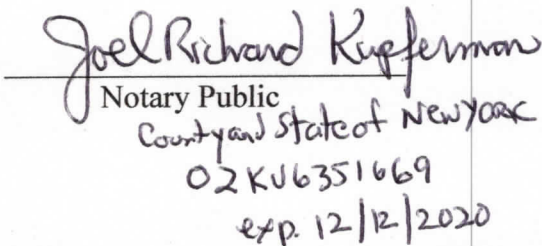 Joel Richard Kupferman
Notary Public
County and State of New YORK
02KU6351669
exp. 12/12/2020